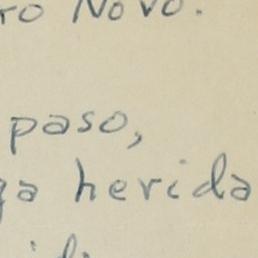 ro Novo.
paso,
za herida